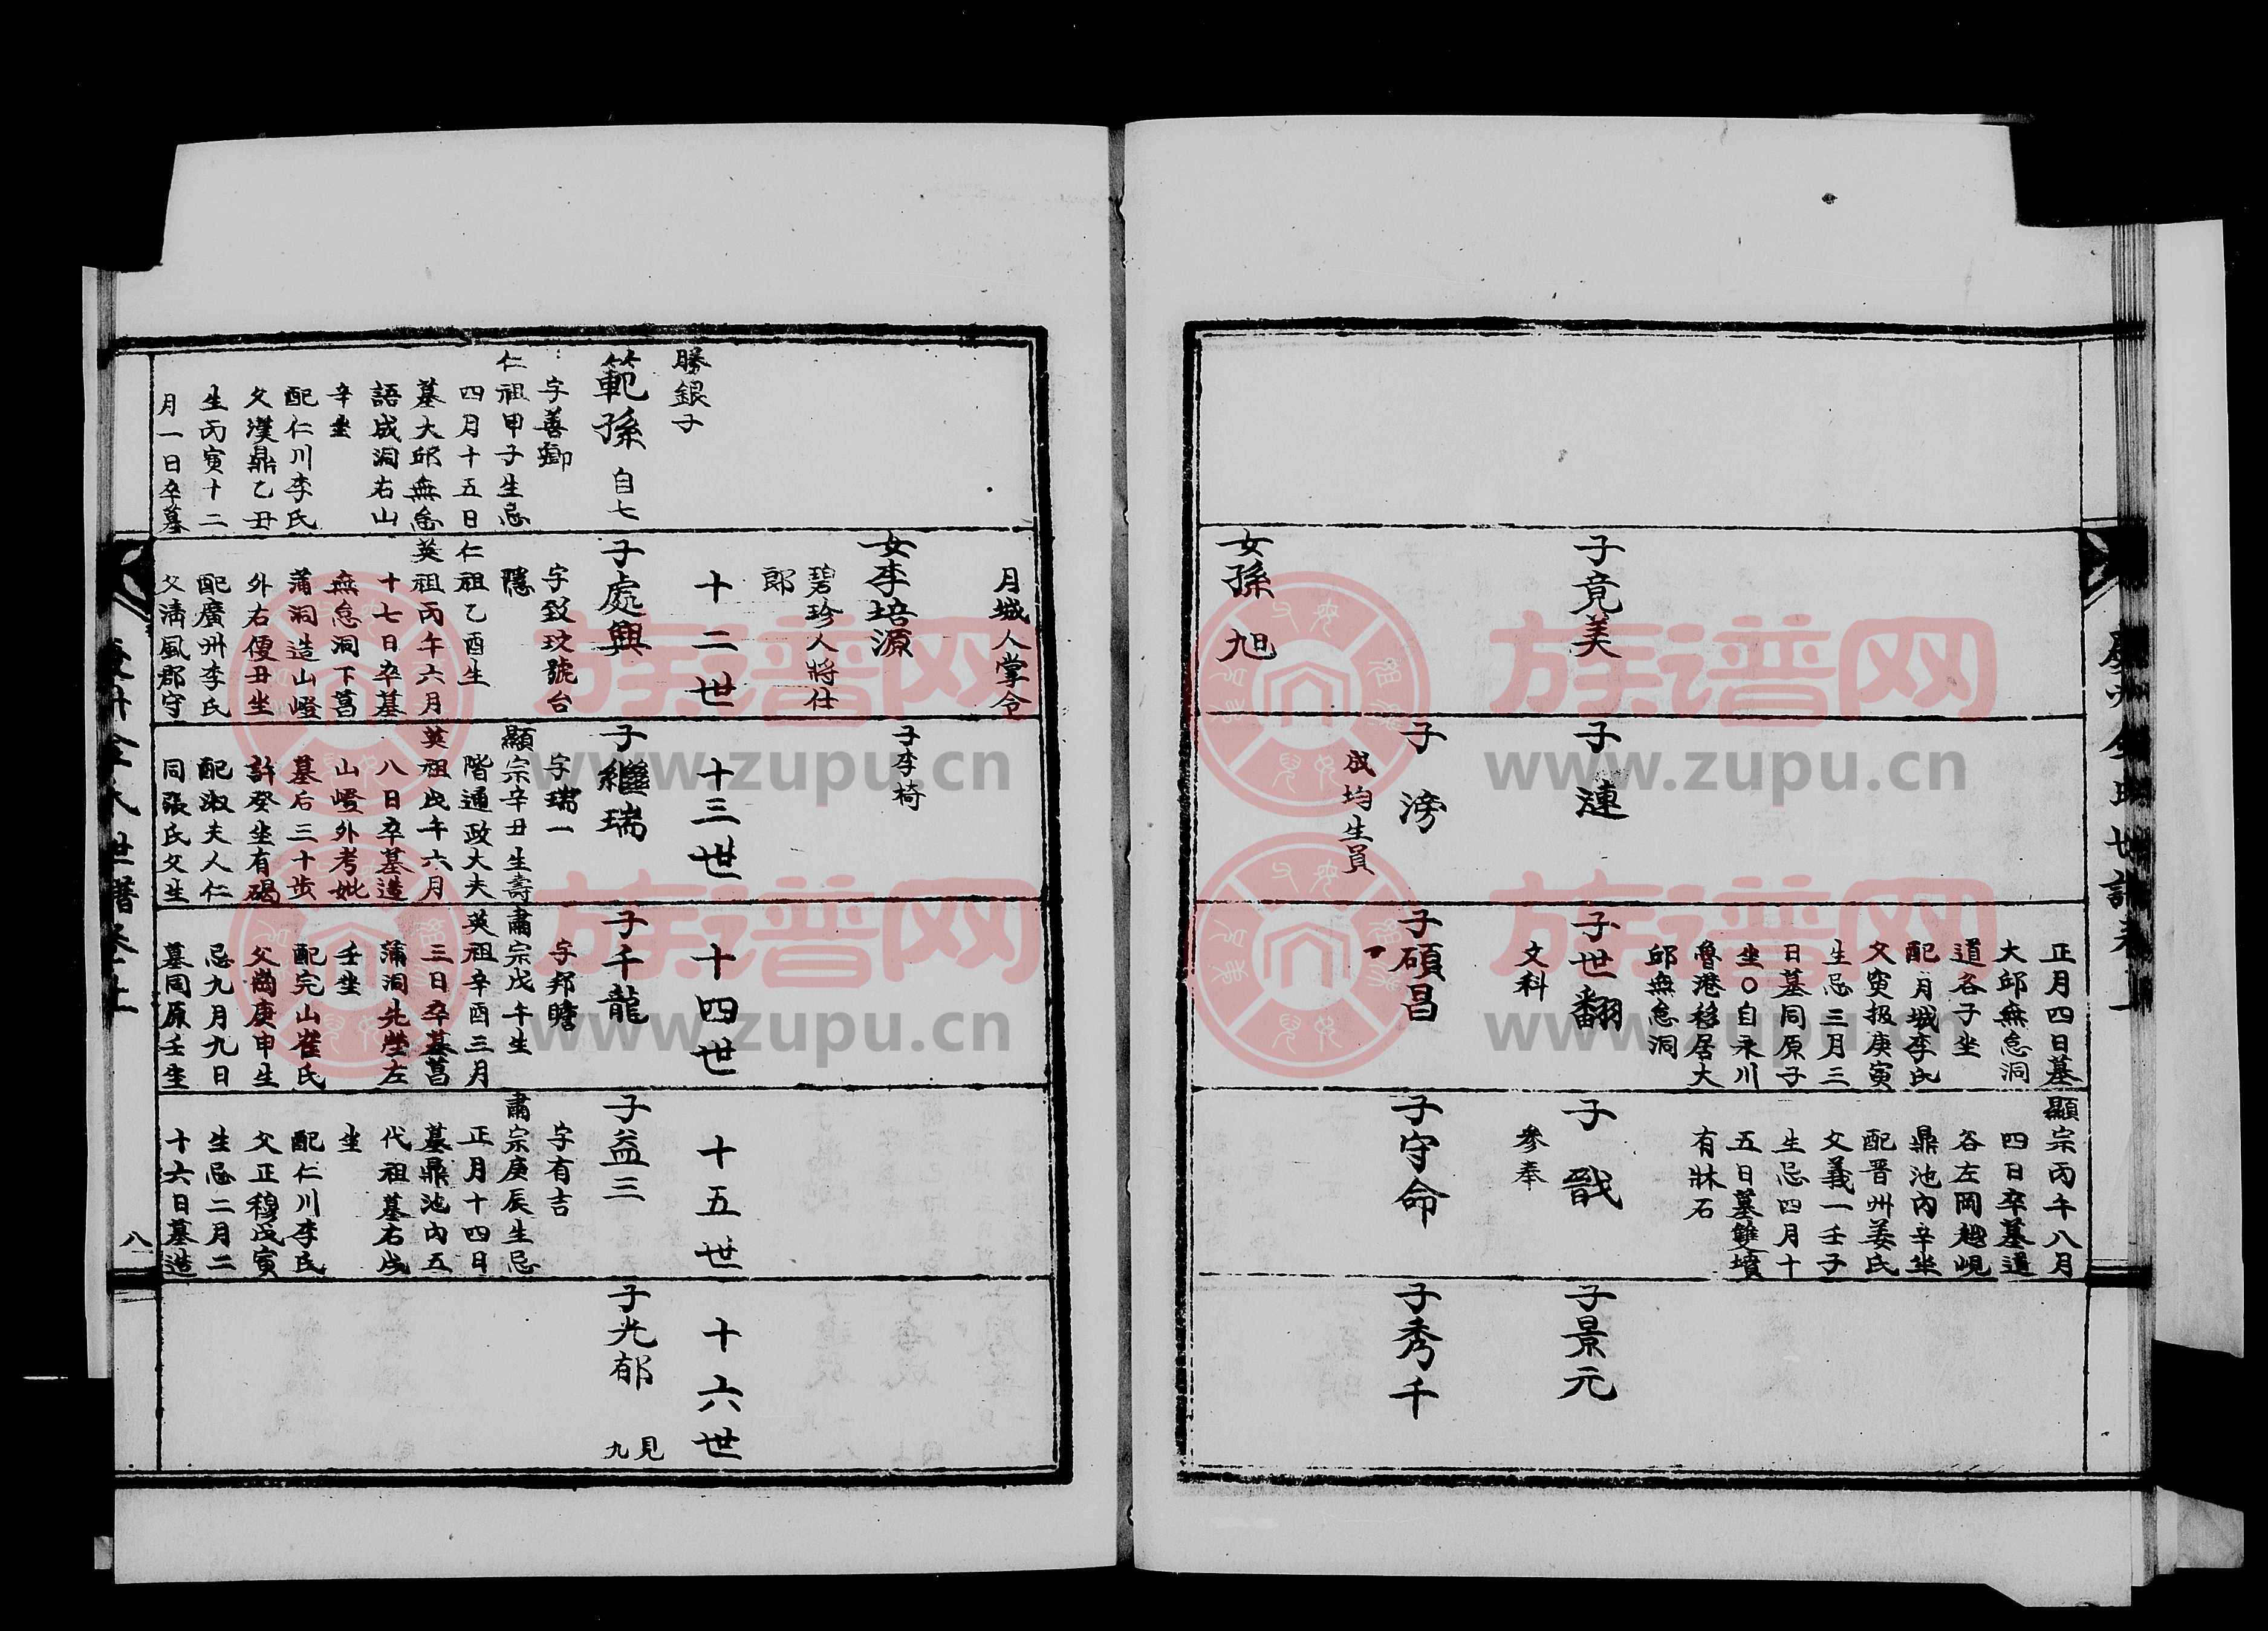 正月四日墓
大邱無怠洞
道谷子坐
配月城李氏
父寅报庚寅
生忌三月三
日墓同原子
坐〇自永川
魯港移居大
邱無怠洞
顯宗丙午八月
四日卒墓道
谷左岡越峴
鼎池內辛坐
配晋州姜氏
父義一壬子
生忌四月十
五日墓雙墳
有牀石
子竟美
子漣
子世翻
文科
子戩
參奉
子景元
子滂
成均生員
子碩昌
子守命
子秀千
女孫旭
月城人掌令
女李培源
碧珍人將仕
郎
子李椅
十二世
十三世
十四世
十五世
十六世
勝銀子
範孫 自七
字善卿
仁祖甲子生忌
四月十五日
墓大邱無怠
語成洞右山
辛坐
配仁川李氏
父漢鼎乙丑
生丙寅十二
月一日卒墓
子處興
字致玟號台
隱
仁祖乙酉生
英祖丙午六月
十七日卒墓
無怠洞下菖
蒲洞造山嶝
外右便丑坐
配廣州李氏
父清風郡守
子繼瑞
字瑞一
顯宗辛丑生壽
階通政大夫
英祖戊午六月
八日卒墓造
山嶝外考妣
墓后三十步
許癸坐有碣
配淑夫人仁
同張氏父生
子千龍
字邦瞻
肅宗戊午生
英祖辛酉三月
三日卒墓菖
蒲洞先塋左
壬坐
配完山崔氏
父崗庚申生
忌九月九日
墓同原壬坐
子益三
字有吉
肅宗庚辰生忌
正月十四日
墓鼎池內五
代祖墓右戌
坐
配仁川李氏
父正穆戊寅
生忌二月二
十六日墓造
子光郁 見九
八
族谱网
www.zupu.cn
族谱网
www.zupu.cn
族谱网
www.zupu.cn
族谱网
www.zupu.cn